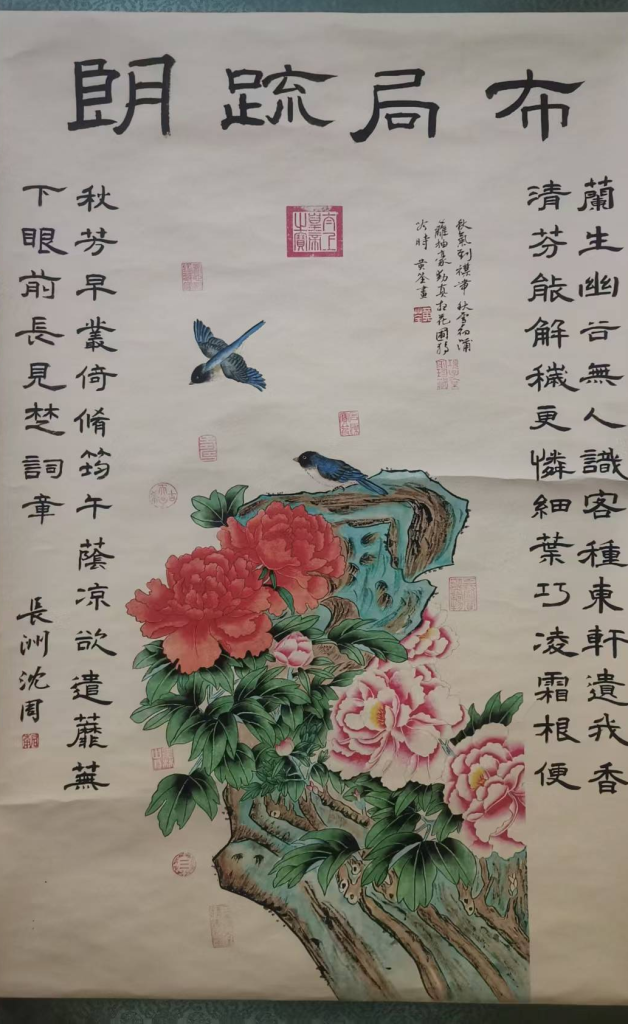 布局疏朗
蘭生幽谷無人識客種東軒遺我香
清芬能解穢更憐細葉巧凌霜根便
秋芳早叢倚脩筠午蔭凉欲遣蘼蕪
下眼前長見楚詞章
長洲沈周
時 黄筌畫
太上皇帝之寶